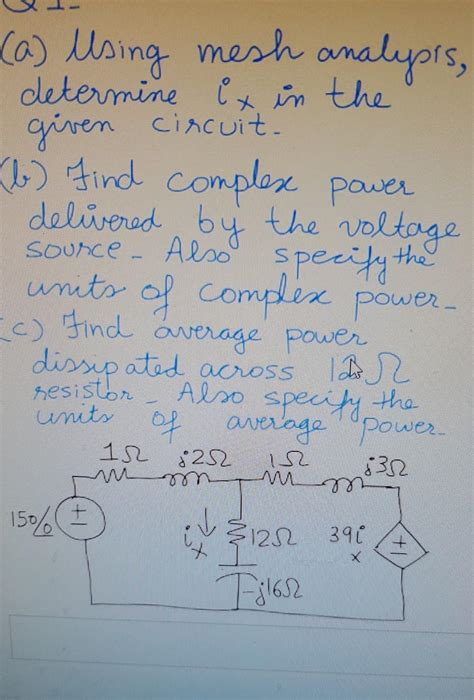 Q 1-
(a) Using mesh analysis,
determine ix in the
given circuit.
(b) Find complex power
delivered by the voltage
source. Also specify the
units of complex power.
(c) Find average power
dissipated across 12Ω
resistor. Also specify the
units of average power.
1Ω j2Ω 1Ω j3Ω
150/0
ix 12Ω 39ix
-j16Ω